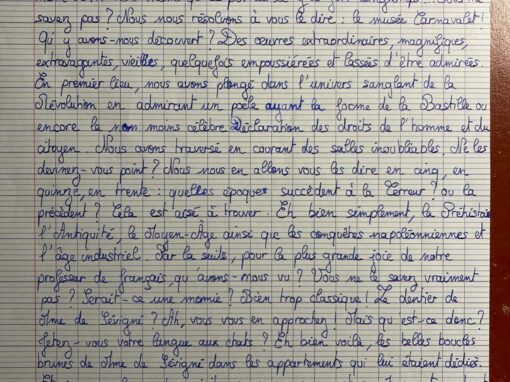 savez pas ? Nous nous résolvons à vous le dire : le musée Carnavalet !
Qu'y avons-nous découvert ? Des œuvres extraordinaires, magnifiques,
extravagantes, vieilles, quelquefois empoussiérées et lassées d'être admirées.
En premier lieu, nous avons plongé dans l'univers sanglant de la
Révolution en admirant un poêle ayant la forme de la Bastille ou
encore la non moins célèbre Déclaration des droits de l'homme et du
citoyen. Nous avons traversé en courant des salles inoubliables. Ne les
devinez-vous point ? Nous nous en allons vous les dire en cinq, en
quinze, en trente : quelles époques succèdent à la Terreur ? ou la
précèdent ? Cela est aisé à trouver. Eh bien simplement, la Préhistoire
l'Antiquité, le Moyen-Âge ainsi que les conquêtes napoléoniennes et
l'âge industriel. Par la suite, pour la plus grande joie de notre
professeur de français, qu'avons-nous vu ? Vous ne le savez vraiment
pas ? Serait-ce une momie ? Bien trop classique ! Le dentier de
Mme de Sévigné ? Ah, vous vous en approchez ! Mais qu'est-ce donc ?
Jetez-vous votre langue aux chats ? Eh bien voilà, les belles boucles
brunes de Mme de Sévigné dans les appartements qui lui étaient dédiés.